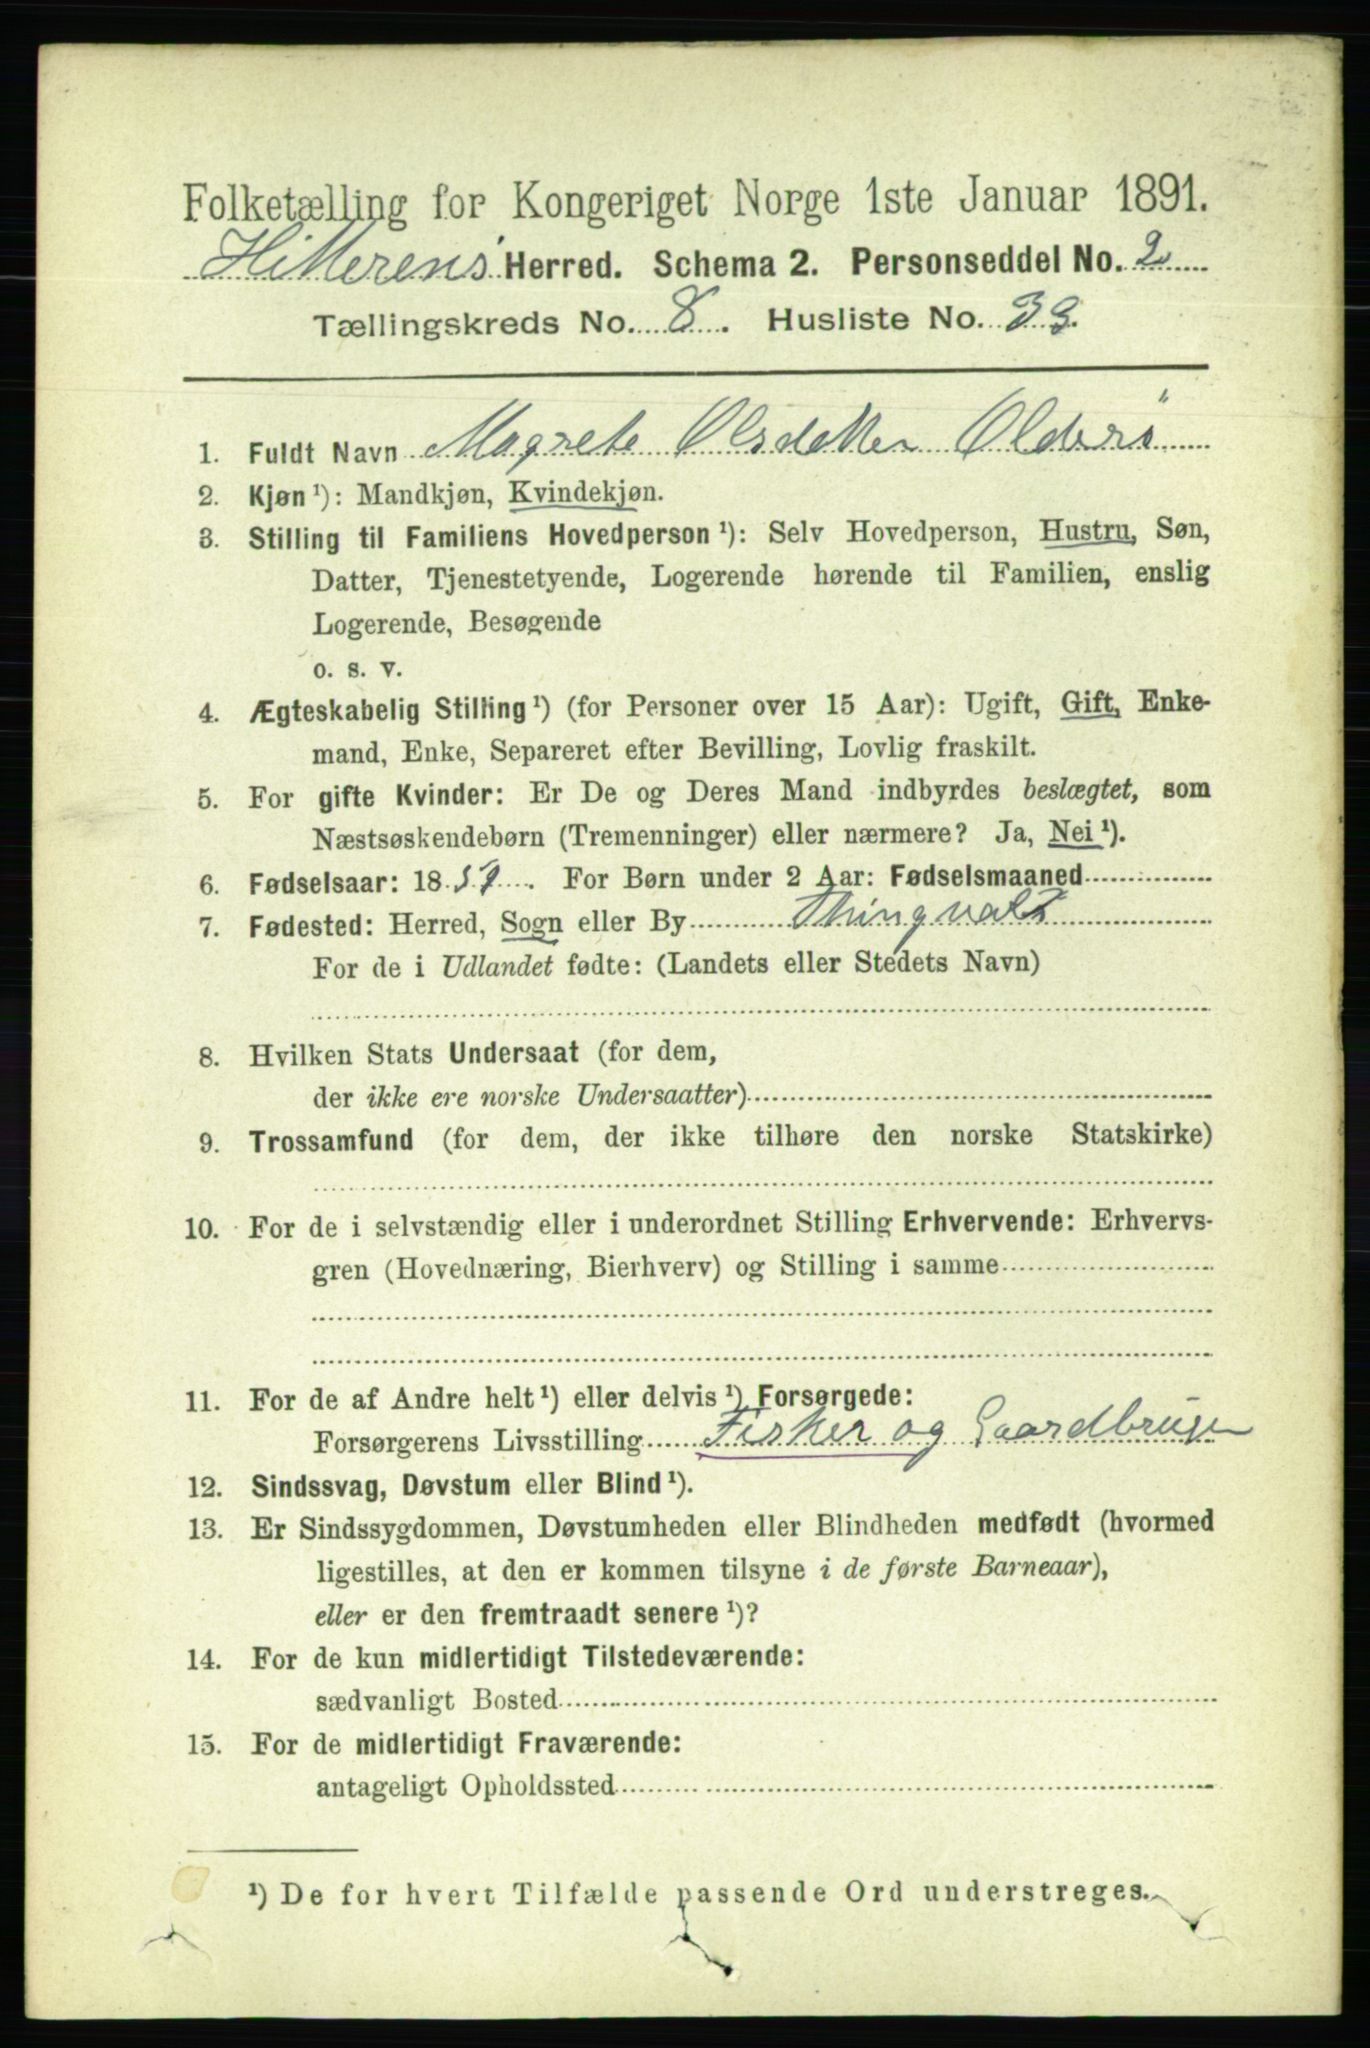 Folketælling for Kongeriget Norge 1ste Januar 1891.
Hitterens Herred. Schema 2. Personseddel No. 2
Tællingskreds No. 8. Husliste No. 39.
1. Fuldt Navn Magrete Olsdatter Olderö
2. Kjøn ¹): Mandkjøn, Kvindekjøn.
3. Stilling til Familiens Hovedperson ¹): Selv Hovedperson, Hustru, Søn,
Datter, Tjenestetyende, Logerende hørende til Familien, enslig
Logerende, Besøgende
o. s. v.
4. Ægteskabelig Stilling ¹) (for Personer over 15 Aar): Ugift, Gift, Enke-
mand, Enke, Separeret efter Bevilling, Lovlig fraskilt.
5. For gifte Kvinder: Er De og Deres Mand indbyrdes beslægtet, som
Næstsøskendebørn (Tremenninger) eller nærmere? Ja, Nei ¹).
6. Fødselsaar: 1859. For Børn under 2 Aar: Fødselsmaaned
7. Fødested: Herred, Sogn eller By Thingvold
For de i Udlandet fødte: (Landets eller Stedets Navn)
8. Hvilken Stats Undersaat (for dem,
der ikke ere norske Undersaatter)
9. Trossamfund (for dem, der ikke tilhøre den norske Statskirke)
10. For de i selvstændig eller i underordnet Stilling Erhvervende: Erhvervs-
gren (Hovednæring, Bierhverv) og Stilling i samme
11. For de af Andre helt ¹) eller delvis ¹) Forsørgede:
Forsørgerens Livsstilling Fisker og Gaardbruger
12. Sindssvag, Døvstum eller Blind ¹).
13. Er Sindssygdommen, Døvstumheden eller Blindheden medfødt (hvormed
ligestilles, at den er kommen tilsyne i de første Barneaar),
eller er den fremtraadt senere ¹)?
14. For de kun midlertidigt Tilstedeværende:
sædvanligt Bosted
15. For de midlertidigt Fraværende:
antageligt Opholdssted
¹) De for hvert Tilfælde passende Ord understreges.